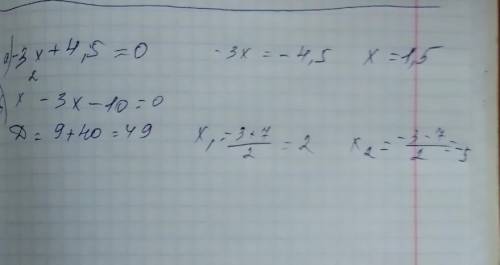 а) -3x + 4,5 = 0    -3x = -4,5    x = 1,5
б) x² - 3x - 10 = 0
D = 9 + 40 = 49    x₁ = (-3+7)/2 = 2    x₂ = (-3-7)/2 = -5